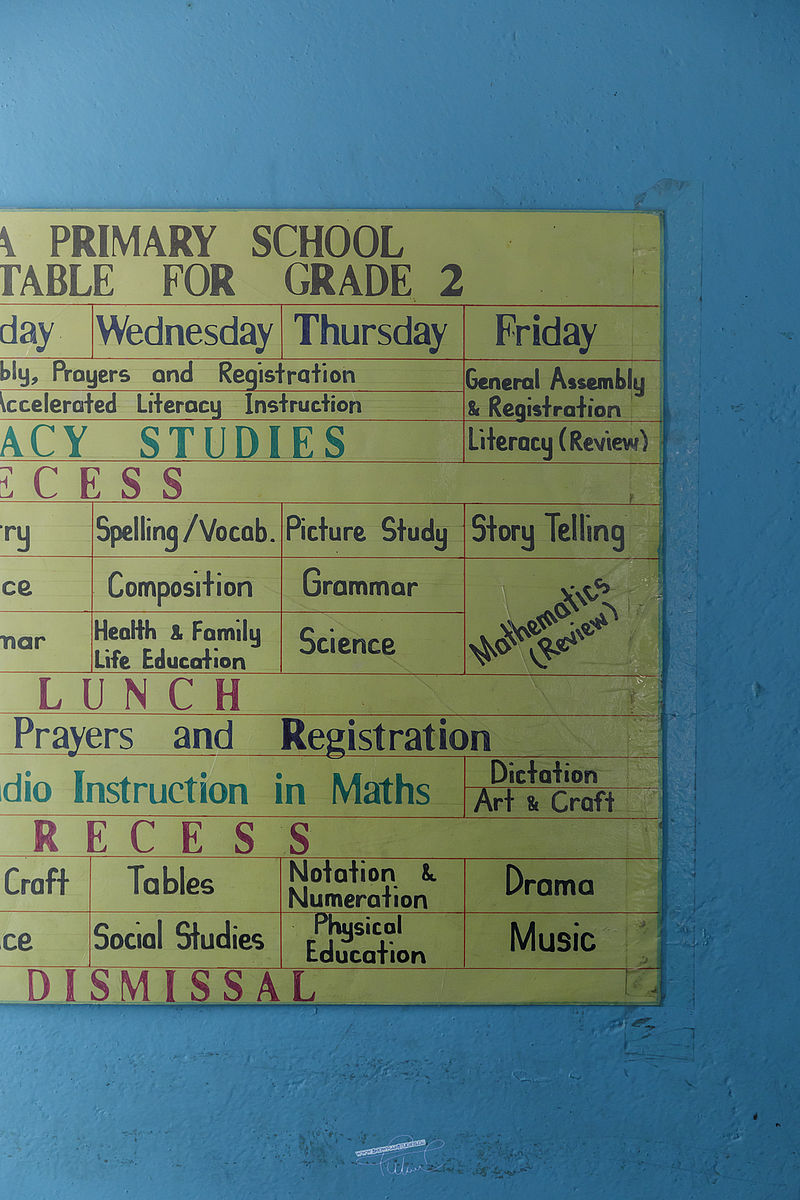 A PRIMARY SCHOOL
TABLE FOR GRADE 2
day Wednesday Thursday Friday
bly, Prayers and Registration General Assembly
& Registration
Accelerated Literacy Instruction
ACY STUDIES Literacy (Review)
ECESS
ry Spelling/Vocab. Picture Study Story Telling
ce Composition Grammar Mathematics
(Review)
mar Health & Family
Life Education Science
LUNCH
Prayers and Registration
dio Instruction in Maths Dictation
Art & Craft
RECESS
Craft Tables Notation &
Numeration Drama
ce Social Studies Physical
Education Music
DISMISSAL